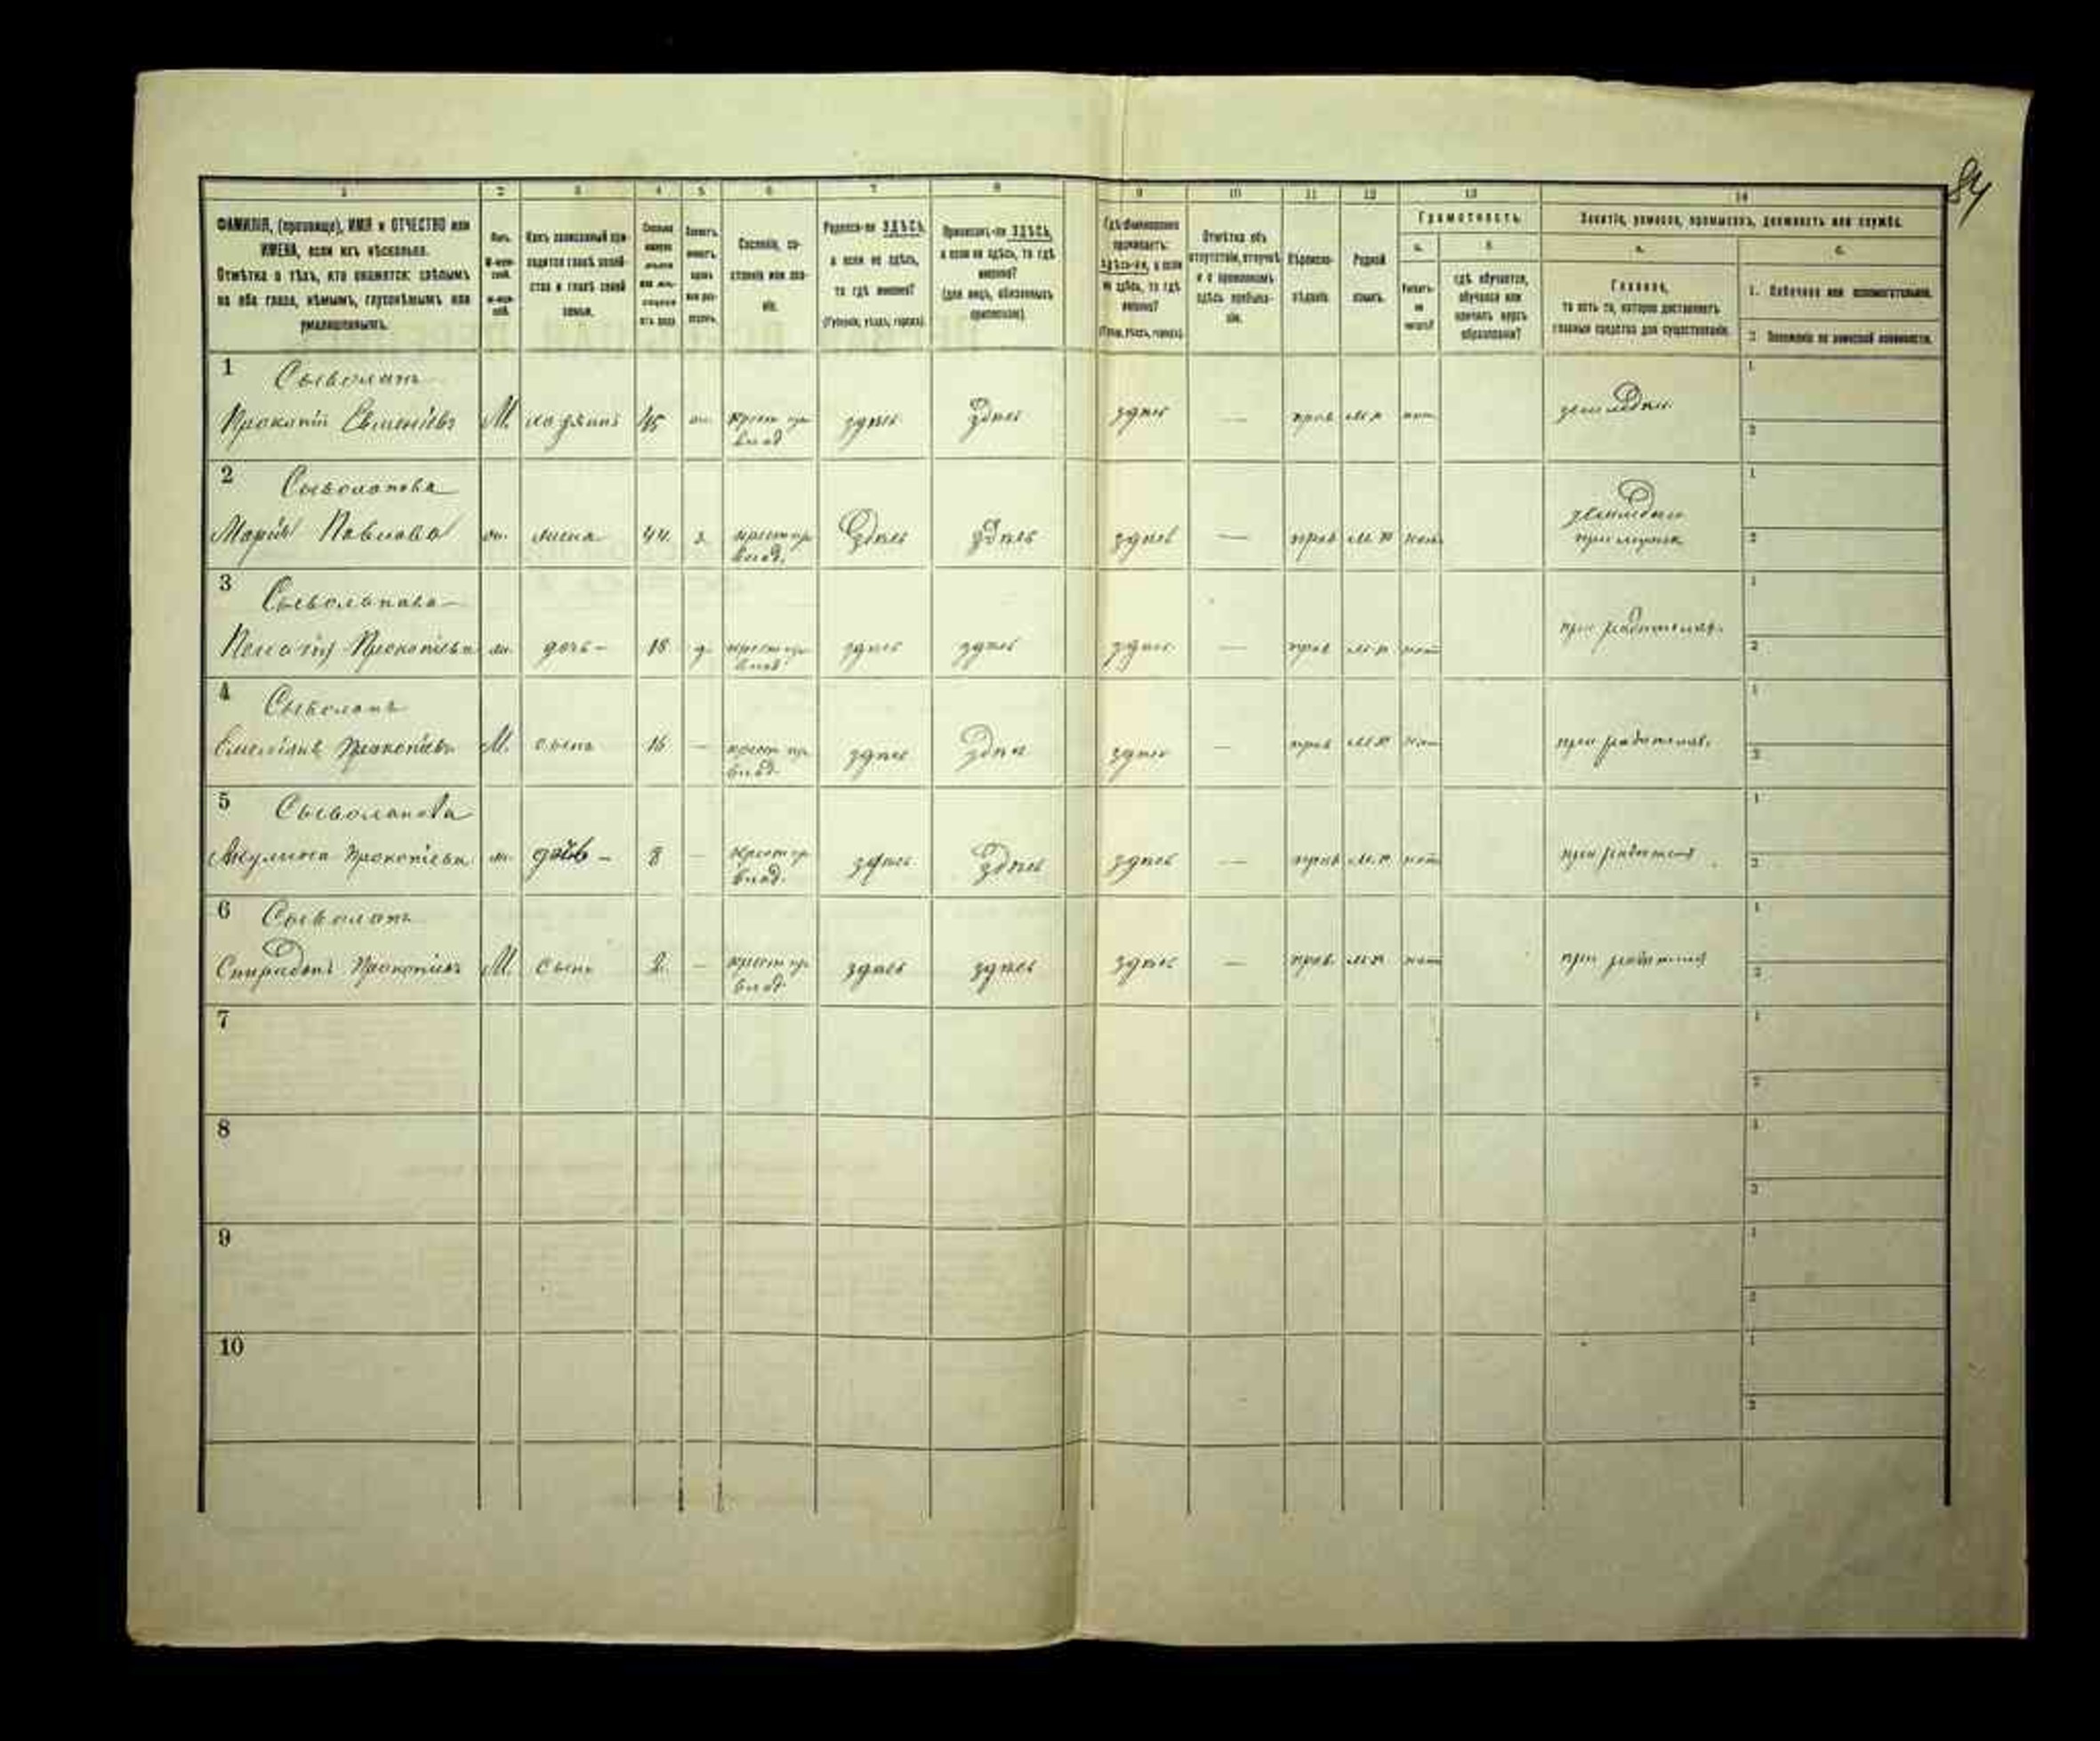 84
1 2 3 4 5 6 7 8 9 10 11 12 13 14
ФАМИЛІЯ, (прозвище), ИМЯ и ОТЧЕСТВО или
ИМЕНА, если ихъ нѣсколько.
Отмѣтка о тѣхъ, кто окажется: слѣпымъ
на оба глаза, нѣмымъ, глухонѣмымъ или
умалишеннымъ.
Полъ.
М-муж-
ской.
Ж-жен-
скій.
Какъ записанный при-
ходится главѣ хозяй-
ства и главѣ своей
семьи.
Сословіе, со-
стояніе или зва-
ніе.
Родился-ли ЗДѢСЬ,
а если не здѣсь,
то гдѣ именно?
(Губернія, уѣздъ, городъ).
Приписанъ-ли ЗДѢСЬ,
а если не здѣсь, то гдѣ
именно?
(для лицъ, обязанныхъ
припискою).
Гдѣ обыкновенно
проживаетъ:
здѣсь-ли, а если
не здѣсь, то гдѣ
именно?
(Губ., уѣздъ, городъ).
Отмѣтка объ
отсутствіи, отлучкѣ
и о временномъ
здѣсь пребыва-
ніи.
Вѣроиспо-
вѣданіе.
Родной
языкъ.
Грамотность.
а.
Умѣетъ-
ли
читать?
б.
гдѣ обучается,
обучался или
кончилъ курсъ
образованія?
Занятіе, ремесло, промыселъ, должность или служба.
а.
Главное,
то есть то, которое доставляетъ
главныя средства для существованія.
б.
1. Побочное или вспомогательное.
2. Положеніе по воинской повинности.
1 Сыволапъ
Прокопій Семеніевъ М. хозяинъ 45 ж. крест. пр. здѣсь здѣсь здѣсь — прав м.р нѣт земледѣл.
влад
2 Сыволапова
Марія Павлова ж. жена 44. з. крест пр здѣсь здѣсь здѣсь — прав м.р нѣт земледѣл
влад. при мужѣ
3 Сыволапова
Пелагія Прокопіева ж. дочь 18 д. крест пр здѣсь здѣсь здѣсь — прав м.р нѣт при родителях.
влад
4 Сыволапъ
Прокопіевъ М. сынъ 16 — крест пр. здѣсь здѣсь здѣсь — прав м.р нѣт при родителях.
влад.
5 Сыволапова
Акулина Прокопіева ж. дочь 8 — крест пр здѣсь здѣсь здѣсь — прав м.р нѣт при родител
влад.
6 Сыволапъ
Спиридонъ Прокопіевъ М. сынъ 2. — крест пр. здѣсь здѣсь здѣсь — прав. м.р нѣт при родител
влад
7
8
9
10